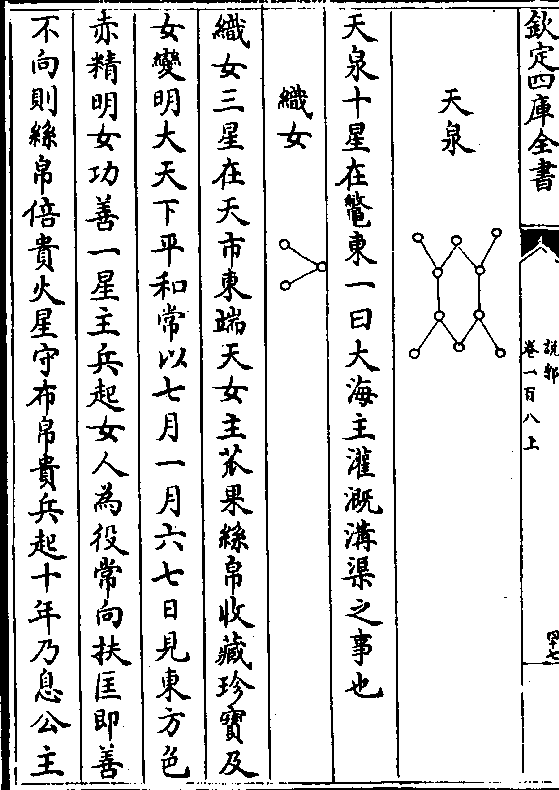 欽定四庫全書
說郛
卷一百八上
四十七
天泉
天泉十星在鼈東一曰大海主灌溉溝渠之事也
織女
織女三星在天市東端天女主苽果絲帛收藏珍寶及
女變明大天下平和常以七月一月六七日見東方色
赤精明女功善一星主兵起女人為役常向扶匡即善
不向則絲帛倍貴火星守布帛貴兵起十年乃息公主